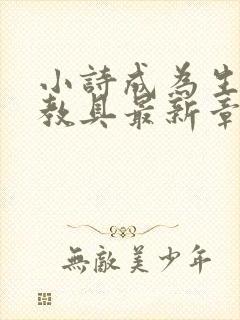 小詩成為生
教具最新章
無敵美少年